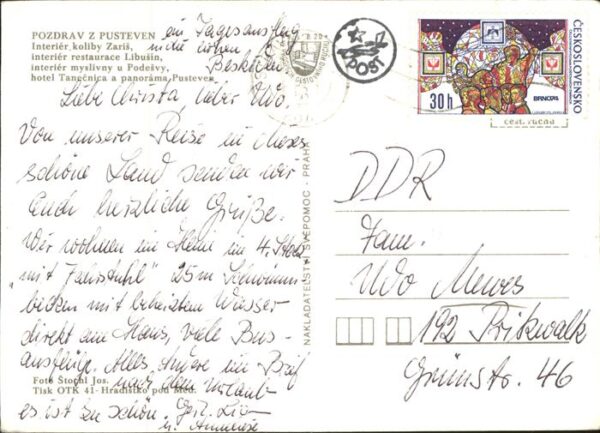 POZDRAV Z PUSTEVEN
Interiér koliby Zariš,
interiér restaurace Libušín,
interiér myslivny u Podešvy,
hotel Tanečnica a panoráma Pusteven
ein Tagesausflug
in die hohen
Beskiden
Liebe Christa, lieber Udo.
Von unserer Reise in dieses
schöne Land senden wir
Euch herzliche Grüße.
Wir wohnen im Heim im 4. Stock
"mit Fahrstuhl" 25m Schwimm
becken mit beheiztem Wasser
direkt am Haus, viele Bus-
ausflüge. Alles Andere im Brief
nach dem Urlaub
es ist zu schön.
Foto Štochl Jos.
Tisk OTK 41 - Hradištko pod Med.
NAKLADATELSTVÍ SVÉPOMOC - PRAHA
POST
ČESKOSLOVENSKO
30h
BRNO 74
DDR
Fam.
Udo Mewes
192 Pritzwalk
Grünstr. 46